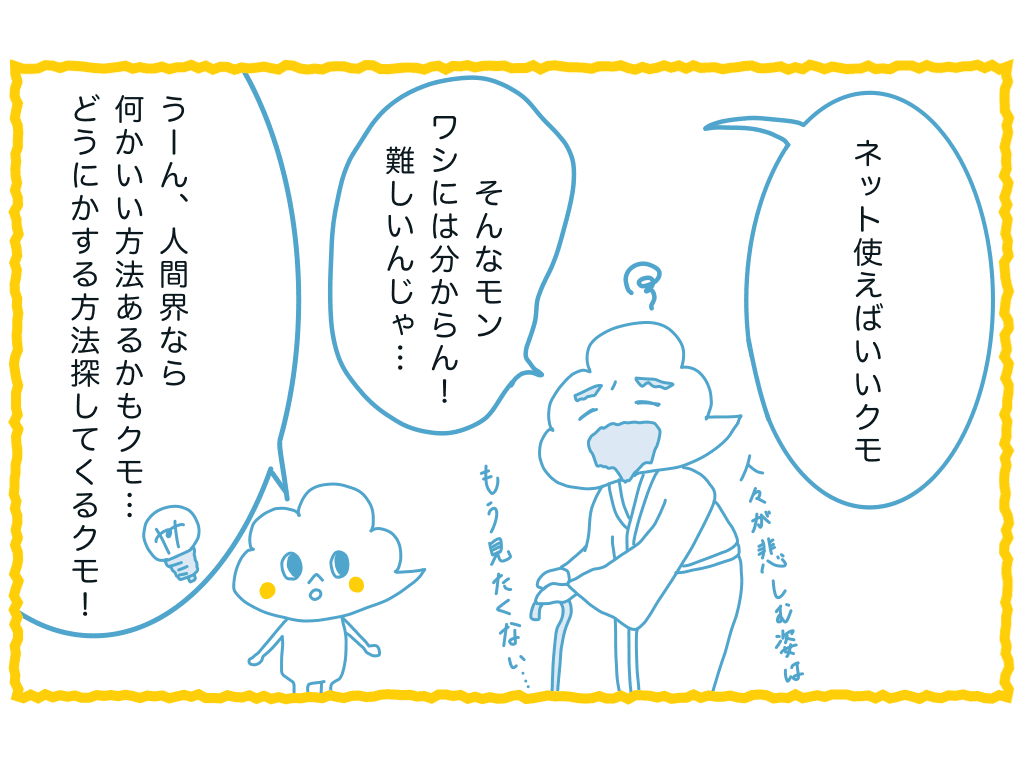 ネット使えばいいクモ
そんなモン
ワシには分からん！
難しいんじゃ…
人々が悲しむ姿は
もう見たくない…
うーん、人間界なら
何かいい方法あるかもクモ…
どうにかする方法探してくるクモ！